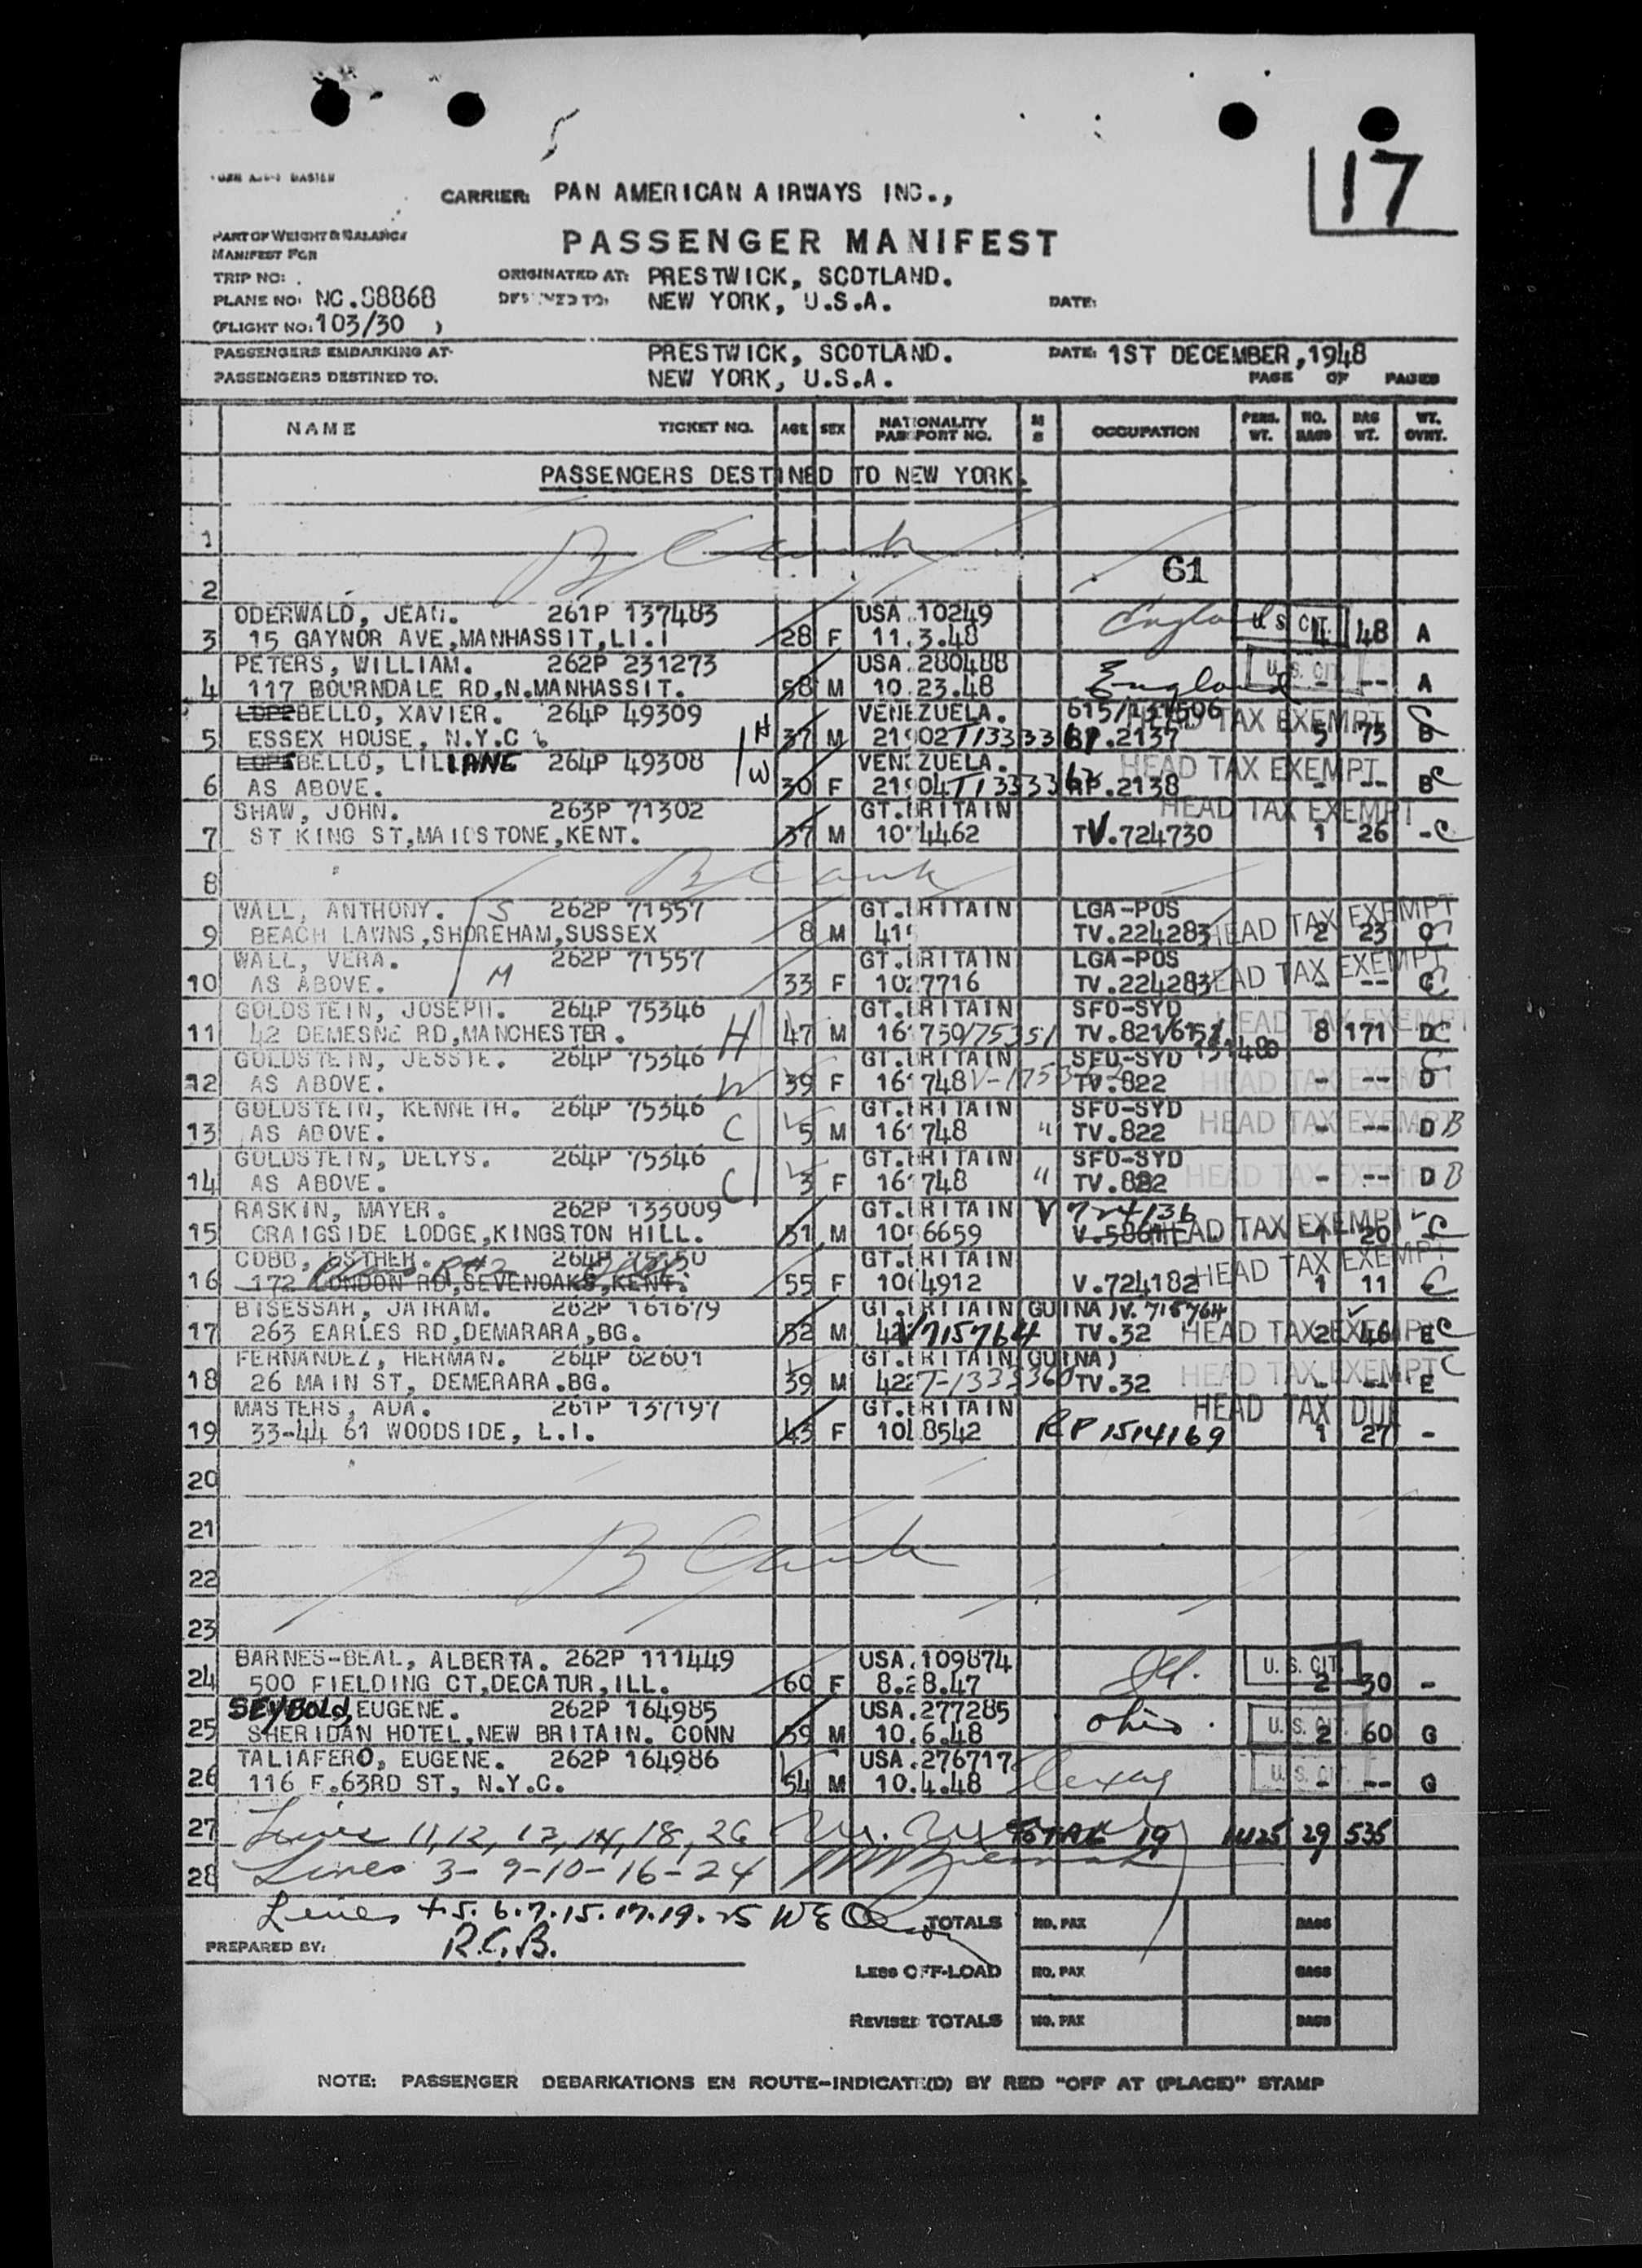 17
CARRIER: PAN AMERICAN AIRWAYS INC.,
PART OF WEIGHT & BALANCE
PASSENGER MANIFEST
MANIFEST FOR
TRIP NO:
ORIGINATED AT: PRESTWICK, SCOTLAND.
PLANE NO: NC.88868
DESTINED TO: NEW YORK, U.S.A.
DATE:
(FLIGHT NO: 103/30 )
PASSENGERS EMBARKING AT- PRESTWICK, SCOTLAND. DATE: 1ST DECEMBER, 1948
PASSENGERS DESTINED TO. NEW YORK, U.S.A. PAGE OF PAGES
NAME TICKET NO. AGE SEX NATIONALITY PASSPORT NO. OCCUPATION PERS. WT. NO. BAGS BAG WT. WT. OVNT.
PASSENGERS DESTINED TO NEW YORK.
1 Blank
2 61
ODERWALD, JEAN. 261P 137483 USA.10249 England U.S. CIT.
3 15 GAYNOR AVE,MANHASSIT,LI.I 28 F 11.3.48 4 48 A
PETERS, WILLIAM. 262P 231273 USA.280488 U.S. CIT.
4 117 BOURNDALE RD,N.MANHASSIT. 58 M 10.23.48 England - -- A
BELLO, XAVIER. 264P 49309 VENEZUELA. HEAD TAX EXEMPT
5 ESSEX HOUSE, N.Y.C H 37 M 5 75 B
BELLO, LILIANE 264P 49308 VENEZUELA. HEAD TAX EXEMPT
6 AS ABOVE. W 30 F RP.2138 - -- B C
SHAW, JOHN. 263P 71302 GT.BRITAIN HEAD TAX EXEMPT
7 ST KING ST,MAIDSTONE,KENT. 37 M 4462 TV.724730 1 26 - C
8 Blank
WALL, ANTHONY. S 262P 71557 GT.BRITAIN LGA-POS
9 BEACH LAWNS,SHOREHAM,SUSSEX 8 M TV.224283 HEAD TAX EXEMPT 2 23 C
WALL, VERA. 262P 71557 GT.BRITAIN LGA-POS
10 AS ABOVE. M 33 F 7716 TV.224283 HEAD TAX EXEMPT - -- C
GOLDSTEIN, JOSEPH. 264P 75346 GT.BRITAIN SFO-SYD
11 42 DEMESNE RD,MANCHESTER. H 47 M HEAD TAX EXEMPT 8 171 D C
GOLDSTEIN, JESSIE. 264P 75346 GT.BRITAIN SFO-SYD
12 AS ABOVE. W 39 F TV.822 HEAD TAX EXEMPT - -- D
GOLDSTEIN, KENNETH. 264P 75346 GT.BRITAIN SFO-SYD
13 AS ABOVE. C 5 M 748 " TV.822 HEAD TAX EXEMPT - -- D B
GOLDSTEIN, DELYS. 264P 75346 GT.BRITAIN SFO-SYD
14 AS ABOVE. C 3 F 748 " TV.822 HEAD TAX EXEMPT - -- D B
RASKIN, MAYER. 262P 133009 GT.BRITAIN V 724136
15 CRAIGSIDE LODGE,KINGSTON HILL. 51 M 6659 HEAD TAX EXEMPT 1 20 - C
COBB, ESTHER. 264P GT.BRITAIN
16 172 LONDON RD,SEVENOAKS,KENT. 55 F 4912 V.724182 HEAD TAX EXEMPT 1 11 C
BISESSAR, JAIRAM. 262P 161679 GT.BRITAIN(GUINA) V.715764
17 263 EARLES RD,DEMARARA,BG. 52 M V715764 TV.32 HEAD TAX EXEMPT 2 46 E C
FERNANDEZ, HERMAN. 264P 82601 GT.BRITAIN(GUINA)
18 26 MAIN ST, DEMERARA.BG. 39 M T-1333360 TV.32 HEAD TAX EXEMPT - -- E C
MASTERS, ADA. 261P 137197 GT.BRITAIN HEAD TAX DUE
19 33-44 61 WOODSIDE, L.I. 43 F 8542 RP 1514169 1 27 -
20
21
22 Blank
23
BARNES-BEAL, ALBERTA. 262P 111449 USA.109874 U.S. CIT.
24 500 FIELDING CT,DECATUR,ILL. 60 F 8.28.47 Ill. 2 30 -
SEYBOLD, EUGENE. 262P 164985 USA.277285
25 SHERIDAN HOTEL,NEW BRITAIN. CONN 59 M 10.6.48 Ohio. U.S. CIT. 2 60 G
TALIAFERO, EUGENE. 262P 164986 USA.276717
26 116 E.63RD ST, N.Y.C. 54 M 10.4.48 Texas U.S. CIT. - -- G
27 Lines 11,12,13,14,18,26 TOTAL 19 29 535
28 Lines 3-9-10-16-24
Lines 5.6.7.15.17.19.25
TOTALS NO. PAX BAGS
PREPARED BY: R.C.B.
LESS OFF-LOAD NO. PAX BAGS
REVISED TOTALS NO. PAX BAGS
NOTE: PASSENGER DEBARKATIONS EN ROUTE-INDICATE(D) BY RED "OFF AT (PLACE)" STAMP